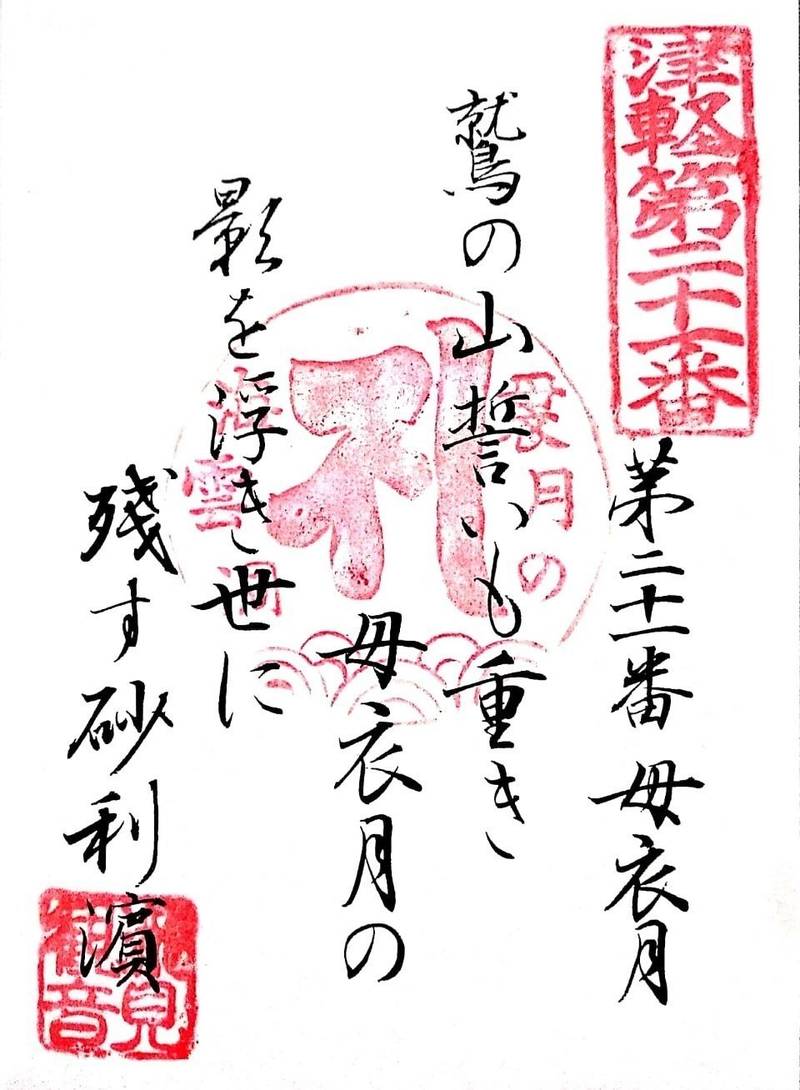 津軽第二十一番
第二十一番 母衣月
鷲の山誓いも重き
母衣月の
影を浮き世に
残す砂利濱
母衣月の